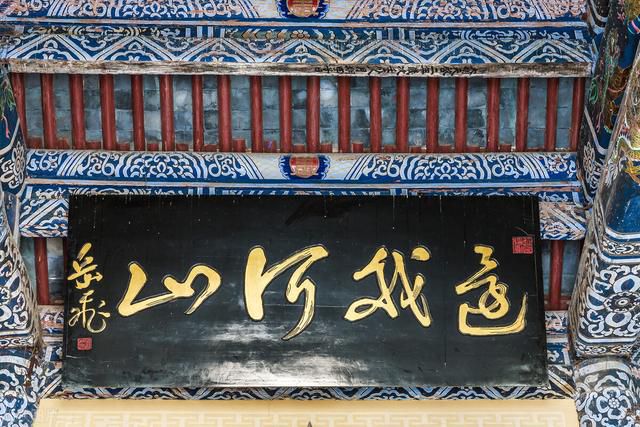 还我河山
岳飞